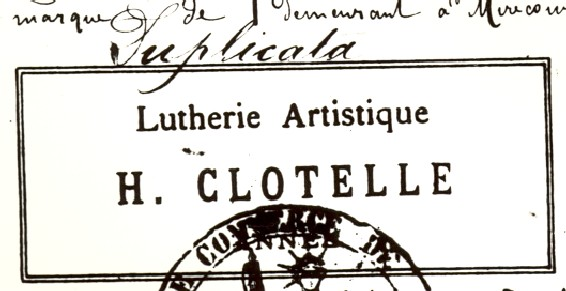 marque de demeurant à Mirecou
Duplicata
Lutherie Artistique
H. CLOTELLE
COMMERCE DE